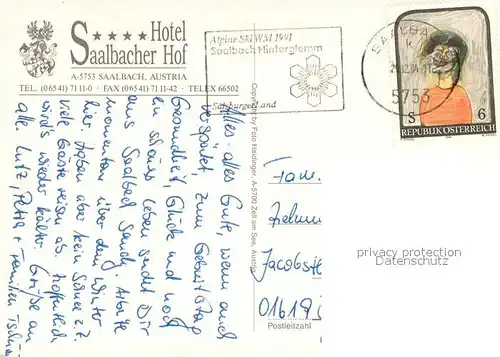 ★★★★ Hotel
Saalbacher Hof
A-5753 SAALBACH, AUSTRIA
TEL. (06541) 71 11-0 · FAX (06541) 71 11-42 · TELEX 66502
Alpine SKI WM 1991
Saalbach Hinterglemm
SalzburgerLand
5753
S 6
REPUBLIK ÖSTERREICH
Copyright by Foto Haidinger, A-5700 Zell am See, Austria
alles Gute, wenn auch
verspätet, zum Geburtstag
Gesundheit, Glück und noch
ein schönes Leben sendet Dir
aus Saalbach Sandy. Arbeite
momentan über den Winter
hier. Haben aber kein Schnee z.Z.
viele Gäste reisen ab. Hoffentlich
wird's wieder kälter. Grüße an
alle Lutz, Petra + Familien
Fam.
Jacobstr
01619
Postleitzahl
privacy protection
Datenschutz